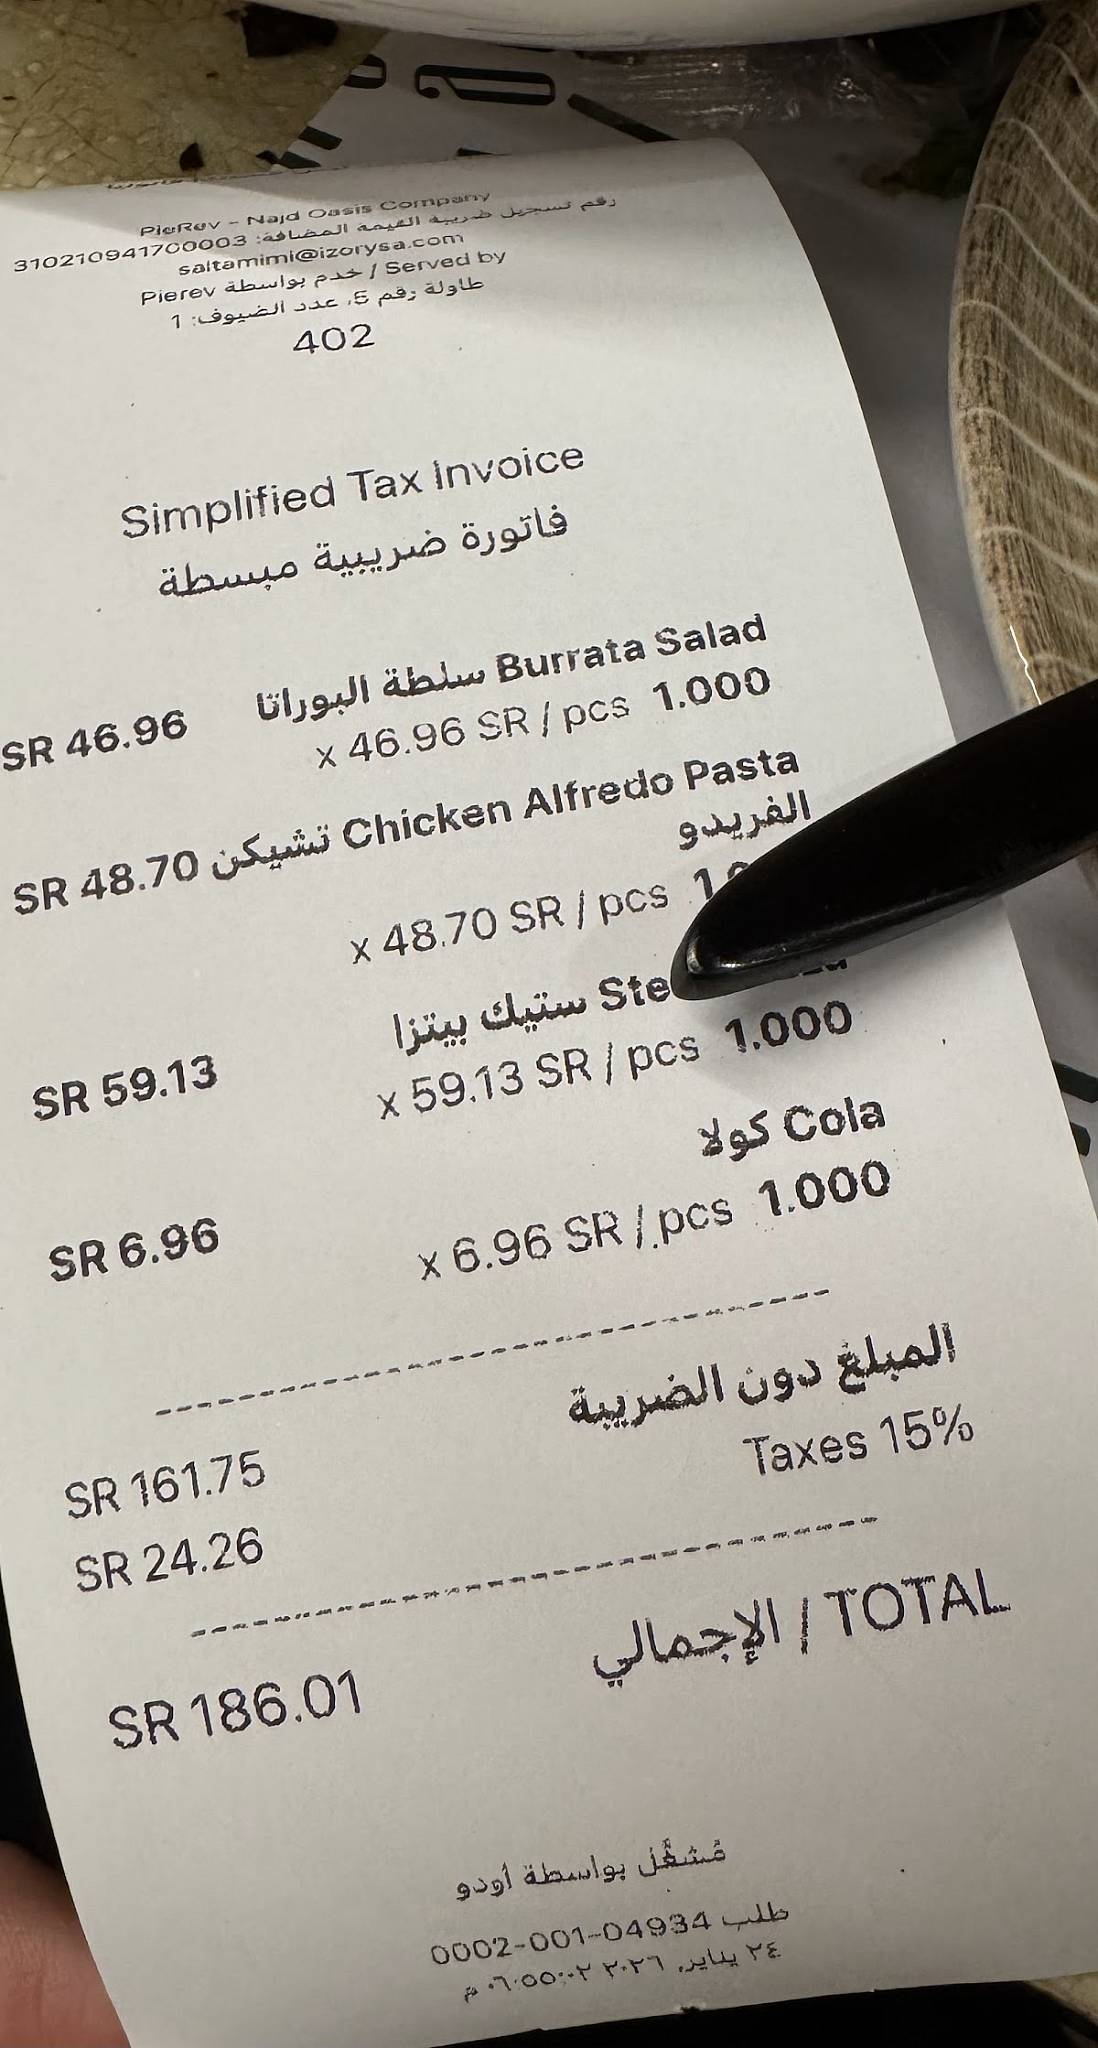 PieRev - Najd Oasis Company
رقم تسجيل ضريبة القيمة المضافة: 310210941700003
saltamimi@izorysa.com
Served by / خدم بواسطة Pierev
طاولة رقم 5, عدد الضيوف: 1
402
Simplified Tax Invoice
فاتورة ضريبية مبسطة
Burrata Salad سلطة البوراتا SR 46.96
1.000 x 46.96 SR / pcs
Chicken Alfredo Pasta تشيكن SR 48.70
الفريدو
x 48.70 SR / pcs
ستيك بيتزا
SR 59.13
1.000 x 59.13 SR / pcs
Cola كولا
SR 6.96
1.000 x 6.96 SR / pcs
المبلغ دون الضريبة SR 161.75
Taxes 15% SR 24.26
TOTAL / الإجمالي SR 186.01
مُشغَّل بواسطة أودو
طلب 04934-001-0002
٢٤ يناير, ٢٠٢٦